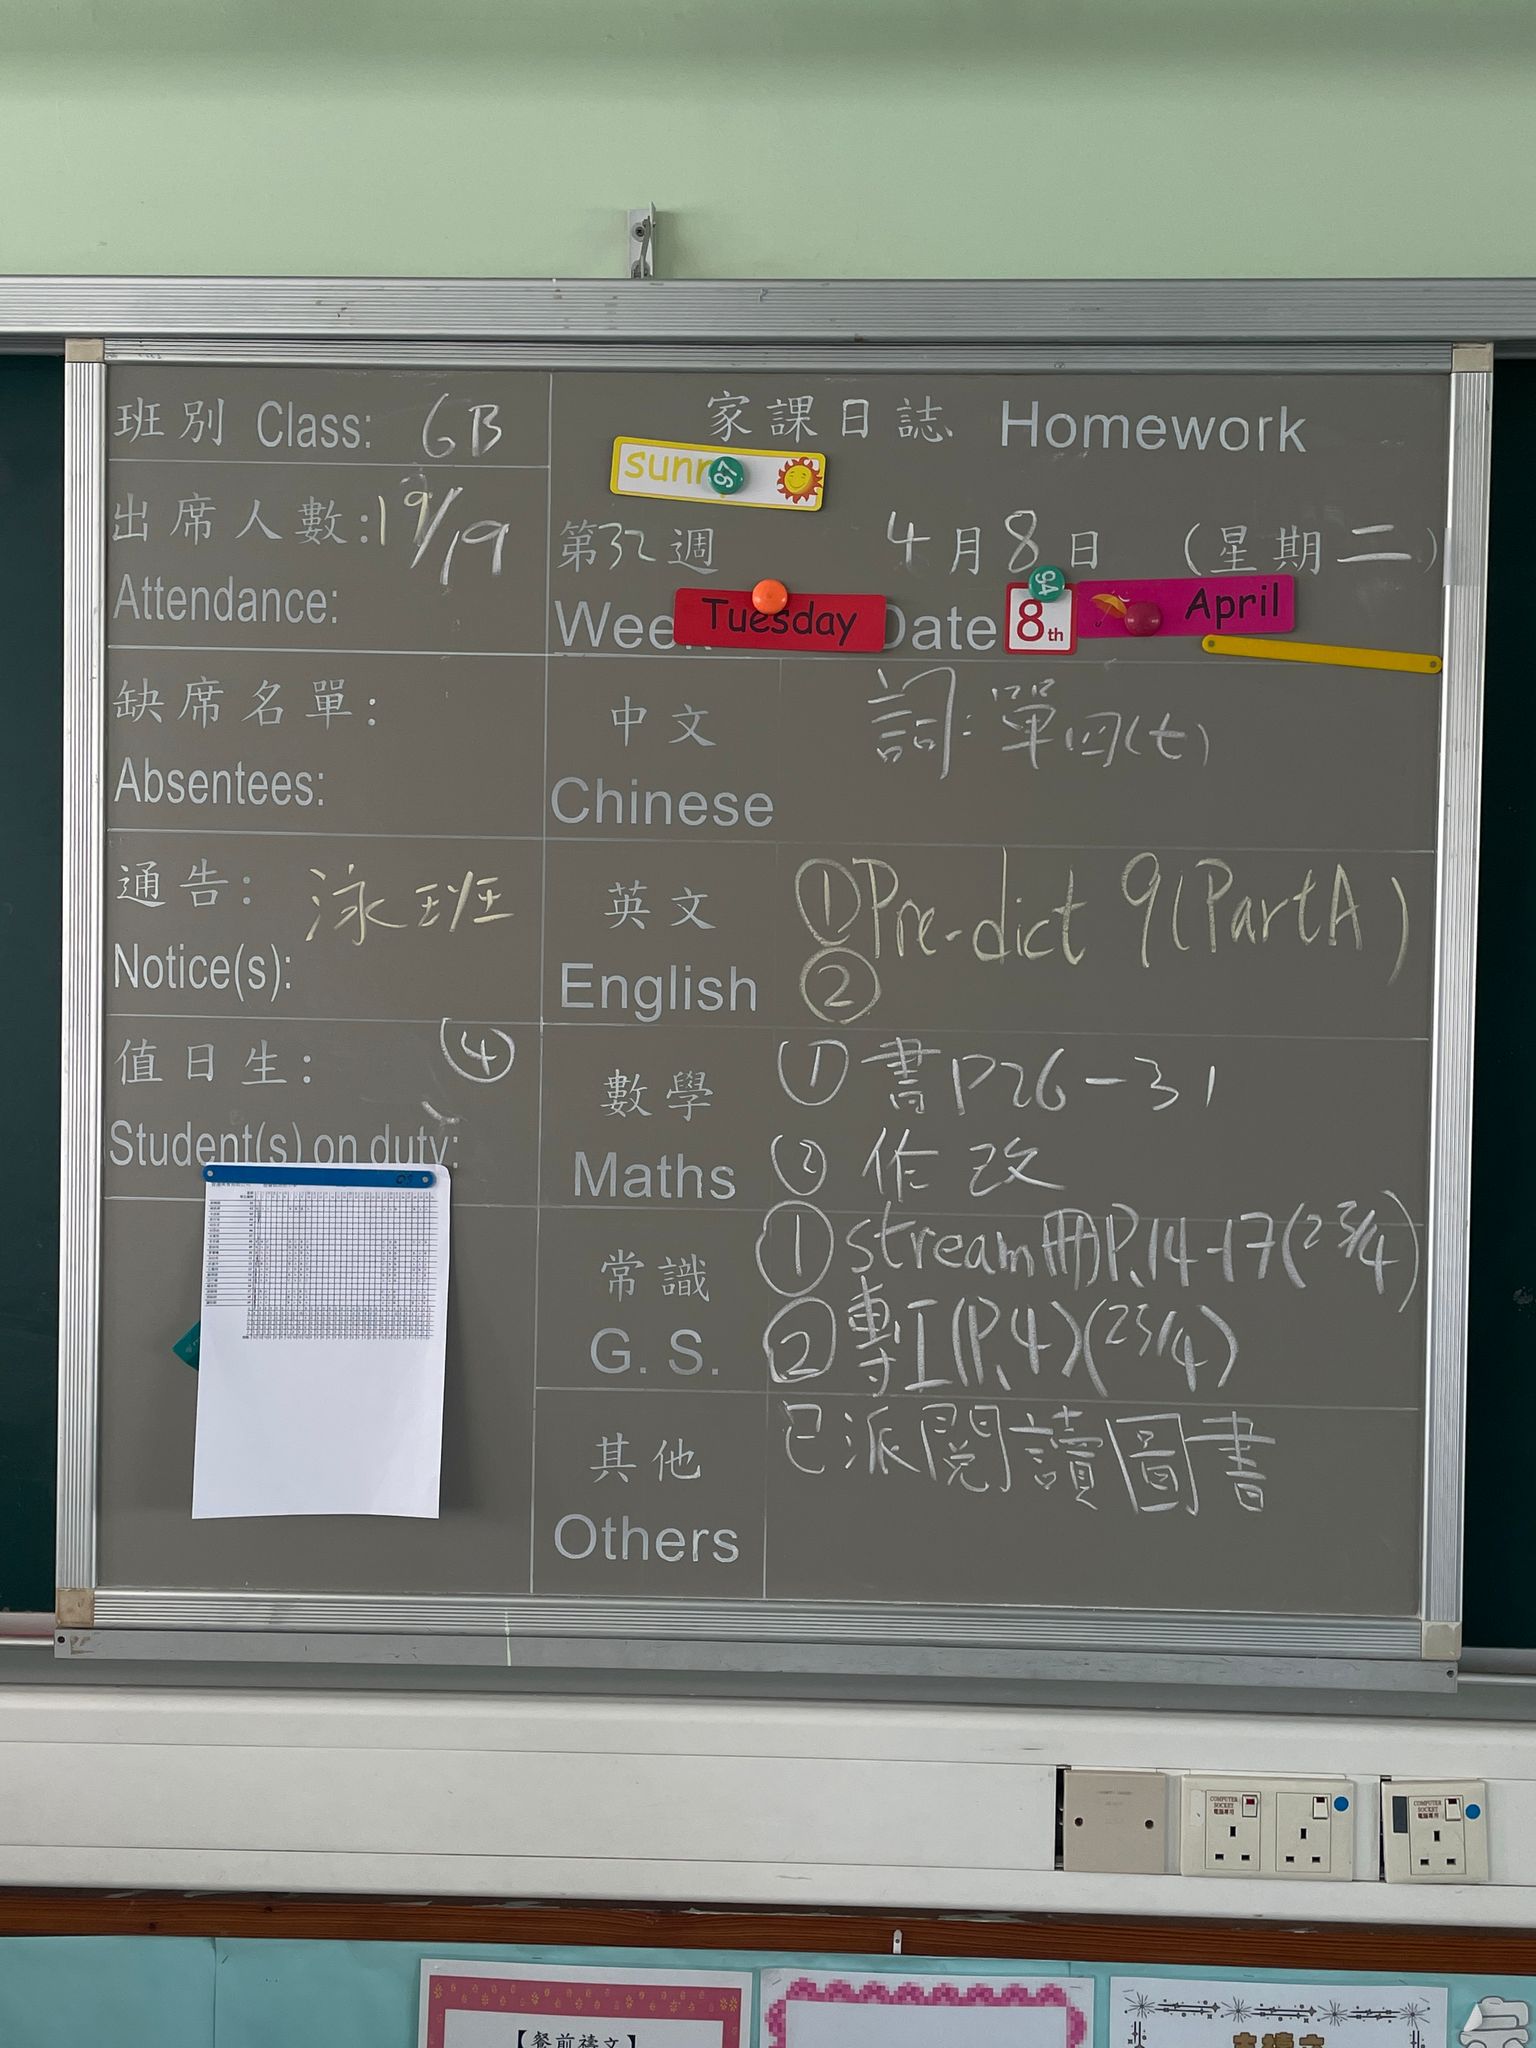 班別 Class: 6B
出席人數: 19/19
Attendance:
缺席名單:
Absentees:
通告: 泳班
Notice(s):
值日生: ④
Student(s) on duty:
家課日誌 Homework
sunny 97
第32週 4月8日 (星期二)
Week Tuesday Date 8th 94 April
中文 詞:單四(七)
Chinese
英文 ①Pre-dict 9(Part A)
English ②
數學 ①書P26-31
Maths ②作改
常識 ①stream冊P.14-17(23/4)
G. S. ②專I(P.4)(23/4)
其他 已派閱讀圖書
Others
COMPUTER SOCKET 電腦專用
COMPUTER SOCKET 電腦專用
【餐前禱文】